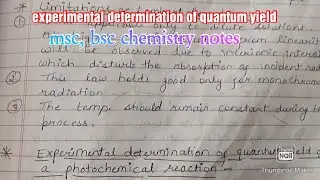 * Limitations
experimental determination of quantum yield
only to dilute solutions
msc, bsc chemistry notes
will be observed due to
which disturb the absorption of incident rad
② This law holds good only for monochrom
radiation.
③ The temp. should remain constant during t
process.
* Experimental determination of quantum yield o
a photochemical reaction -